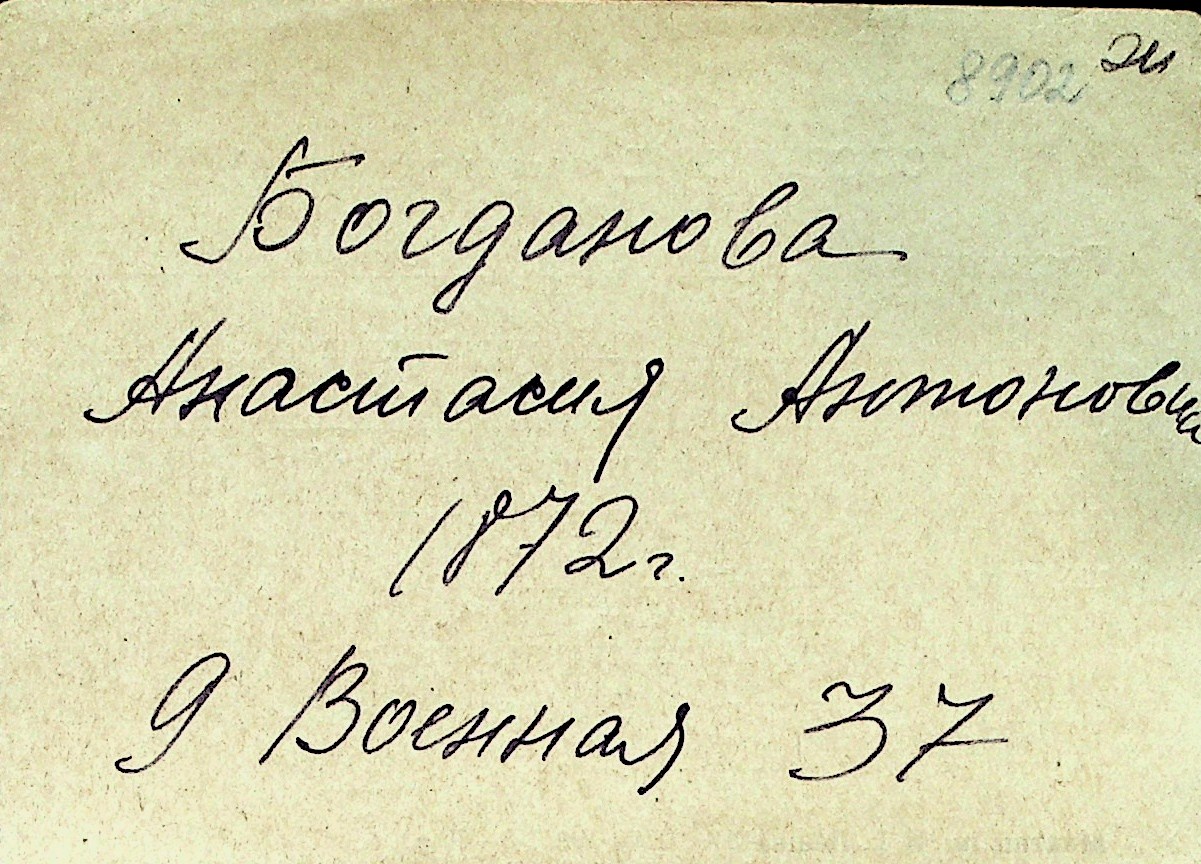 8902
Богданова
Анастасия Антоновна
1872 г.
9 Военная 37